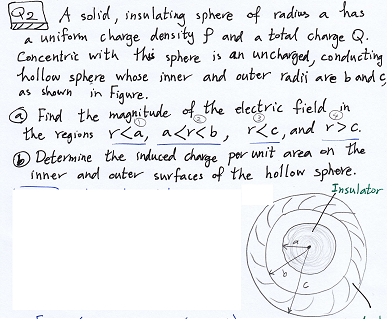 Q2 A solid, insulating sphere of radius a has
a uniform charge density ρ and a total charge Q.
Concentric with this sphere is an uncharged, conducting
hollow sphere whose inner and outer radii are b and c,
as shown in Figure.
ⓐ Find the magnitude of the electric field in
① ② ③ ④
the regions r<a, a<r<b, r<c, and r>c.
ⓑ Determine the induced charge per unit area on the
inner and outer surfaces of the hollow sphere.
Insulator
a
b
c